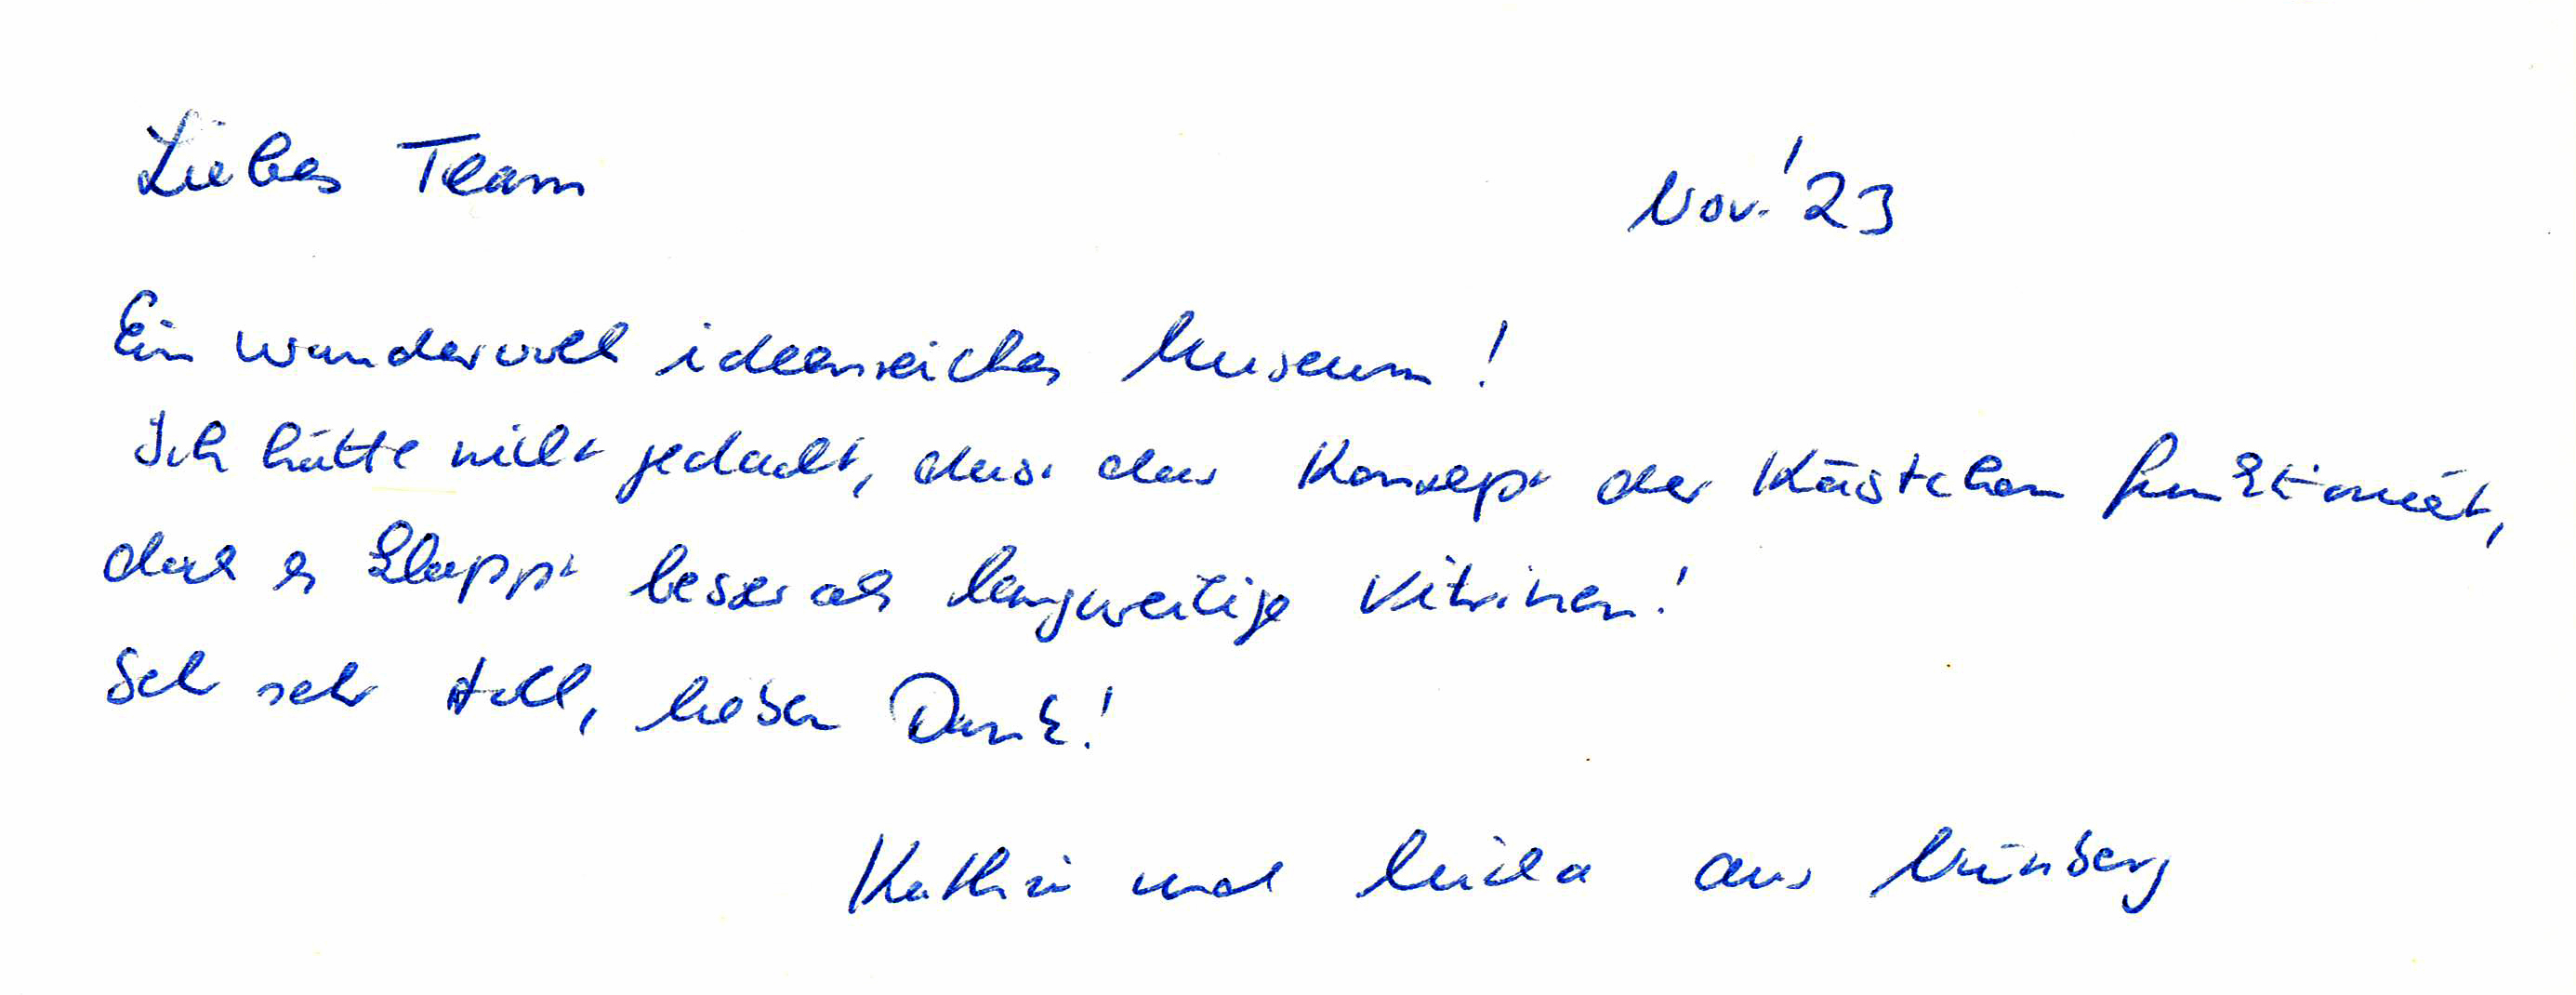 Liebes Team Nov. '23
Ein wundervoll ideenreiches Museum!
Ich hätte nicht gedacht, dass das Konzept der Kästchen funktioniert,
doch es klappt besser als langweilige Vitrinen!
Sehr sehr toll, lieben Dank!
Kathrin und aus Nürnberg